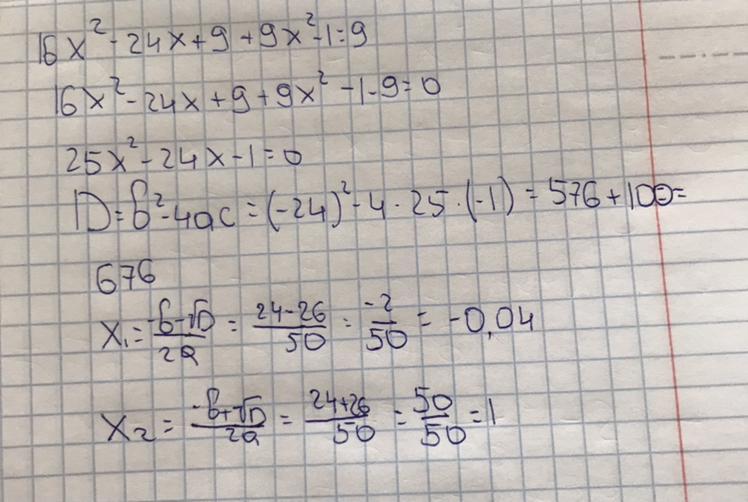 16x² - 24x + 9 + 9x² - 1 = 9
16x² - 24x + 9 + 9x² - 1 - 9 = 0
25x² - 24x - 1 = 0
D = b² - 4ac = (-24)² - 4 · 25 · (-1) = 576 + 100 =
676
x₁ = (-b - √D)/2a = (24 - 26)/50 = -2/50 = -0,04
x₂ = (-b + √D)/2a = (24 + 26)/50 = 50/50 = 1